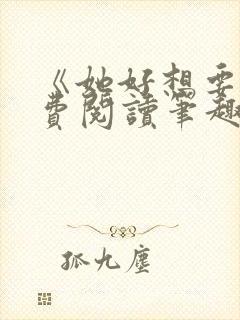 《她好想要
費閱讀筆趣
孤九塵